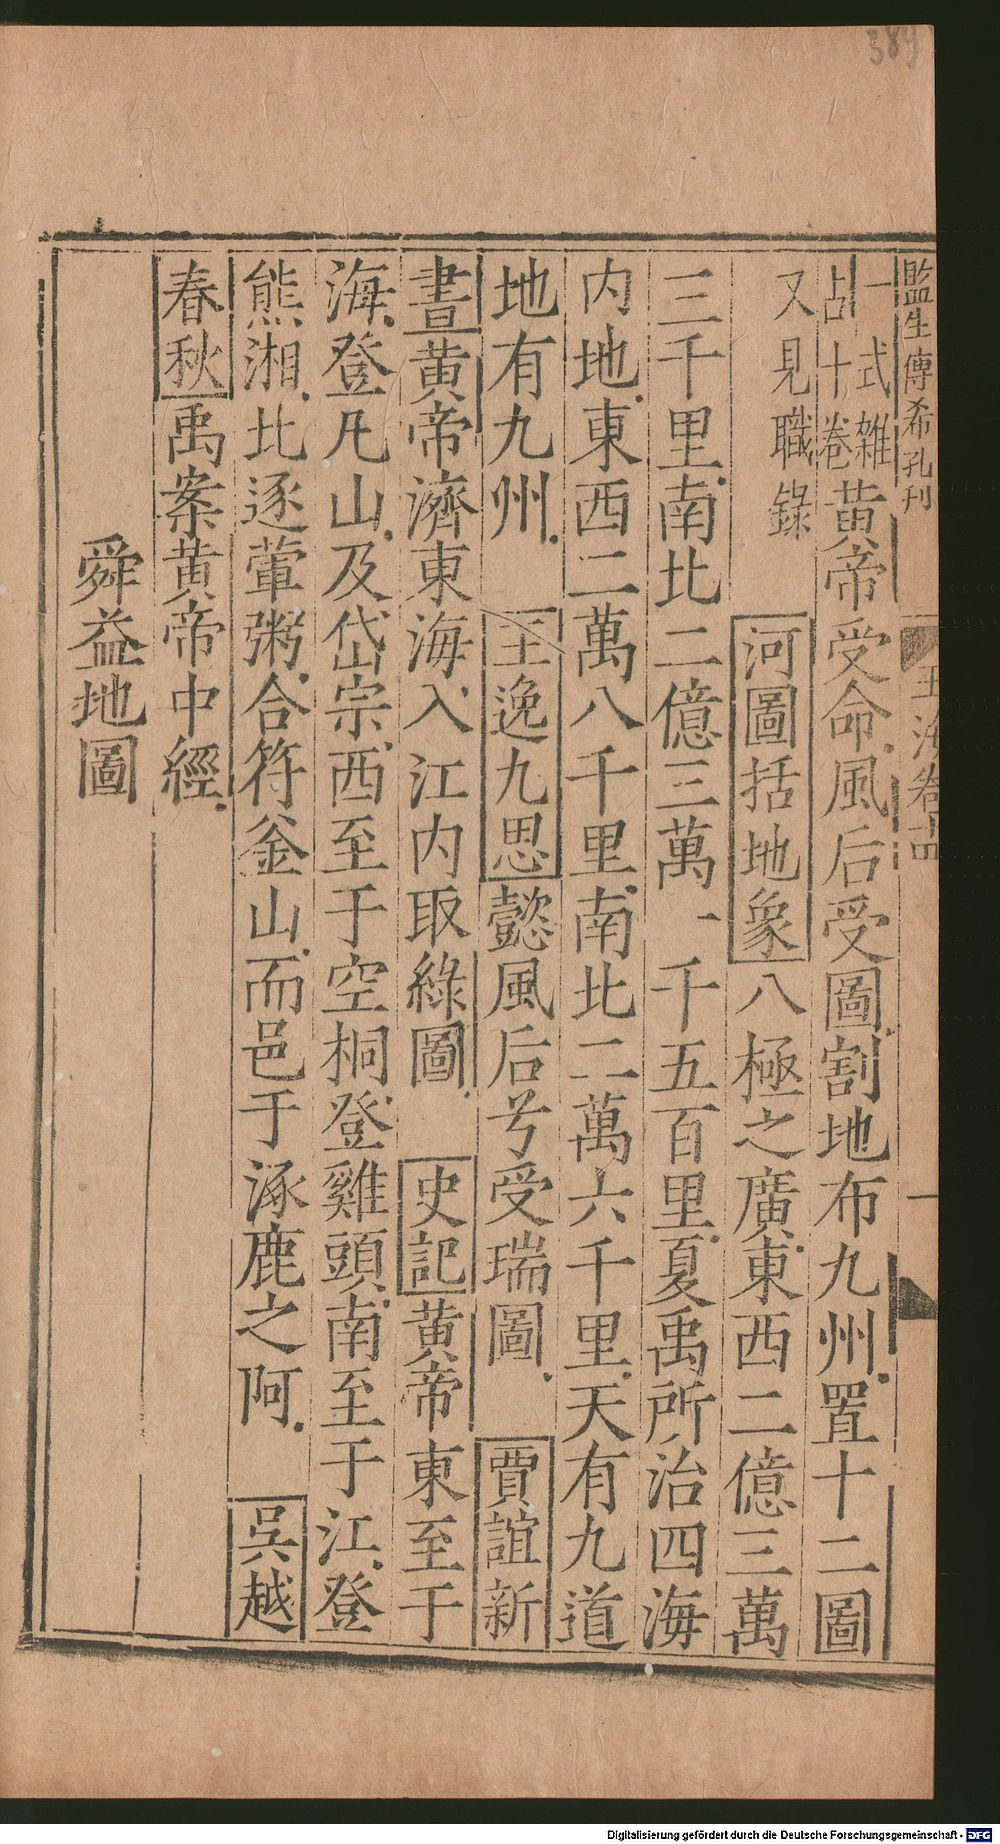 389
監生傳希孔刊
玉海卷十四
一
一式雜
占十卷黄帝受命風后受圖割地布九州置十二圖
又見職錄 河圖括地象八極之廣東西二億三萬
三千里南北二億三萬一千五百里夏禹所治四海
内地東西二萬八千里南北二萬六千里天有九道
地有九州 王逸九思懿風后兮受瑞圖 賈誼新
書黄帝濟東海入江内取綠圖 史記黄帝東至于
海登凡山及岱宗西至于空桐登雞頭南至于江登
熊湘北逐葷粥合符釜山而邑于涿鹿之阿 吳越
春秋禹案黄帝中經
舜益地圖
Digitalisierung gefördert durch die Deutsche Forschungsgemeinschaft - DFG